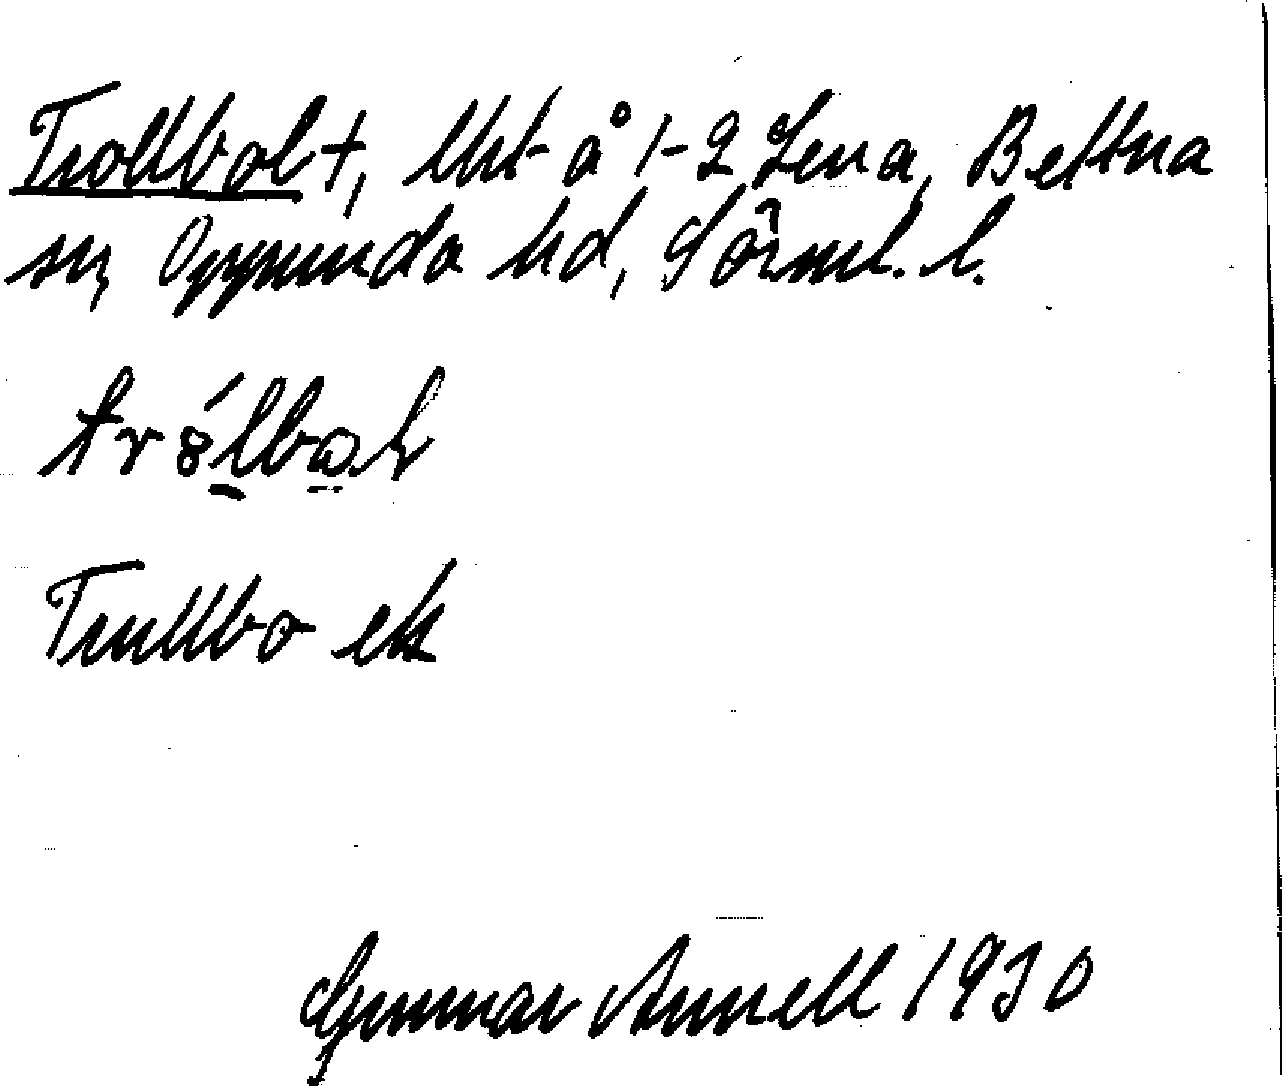 Trollbol †, lht å 1-2 Lena, Bettna
sn, Oppunda hd, Sörml. l.
trólbol
Trullbo ek
Gunnar Annell 1930